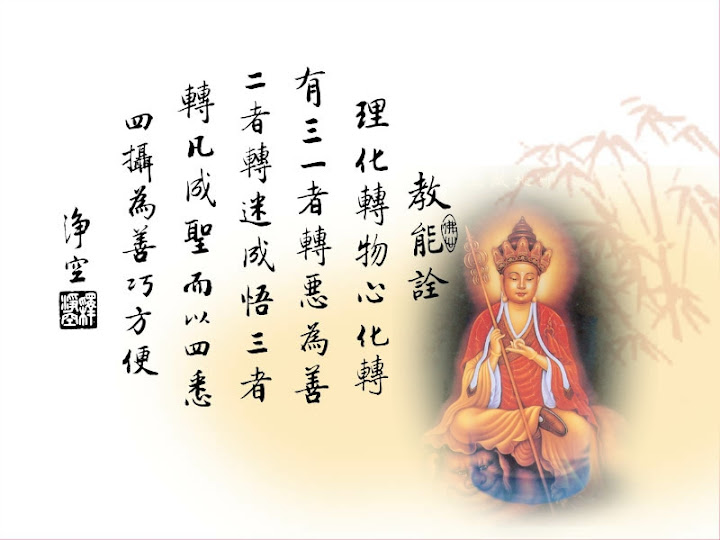 教能詮
理化轉物心化轉
有三一者轉惡為善
二者轉迷成悟三者
轉凡成聖而以四悉
四攝為善巧方便
淨空